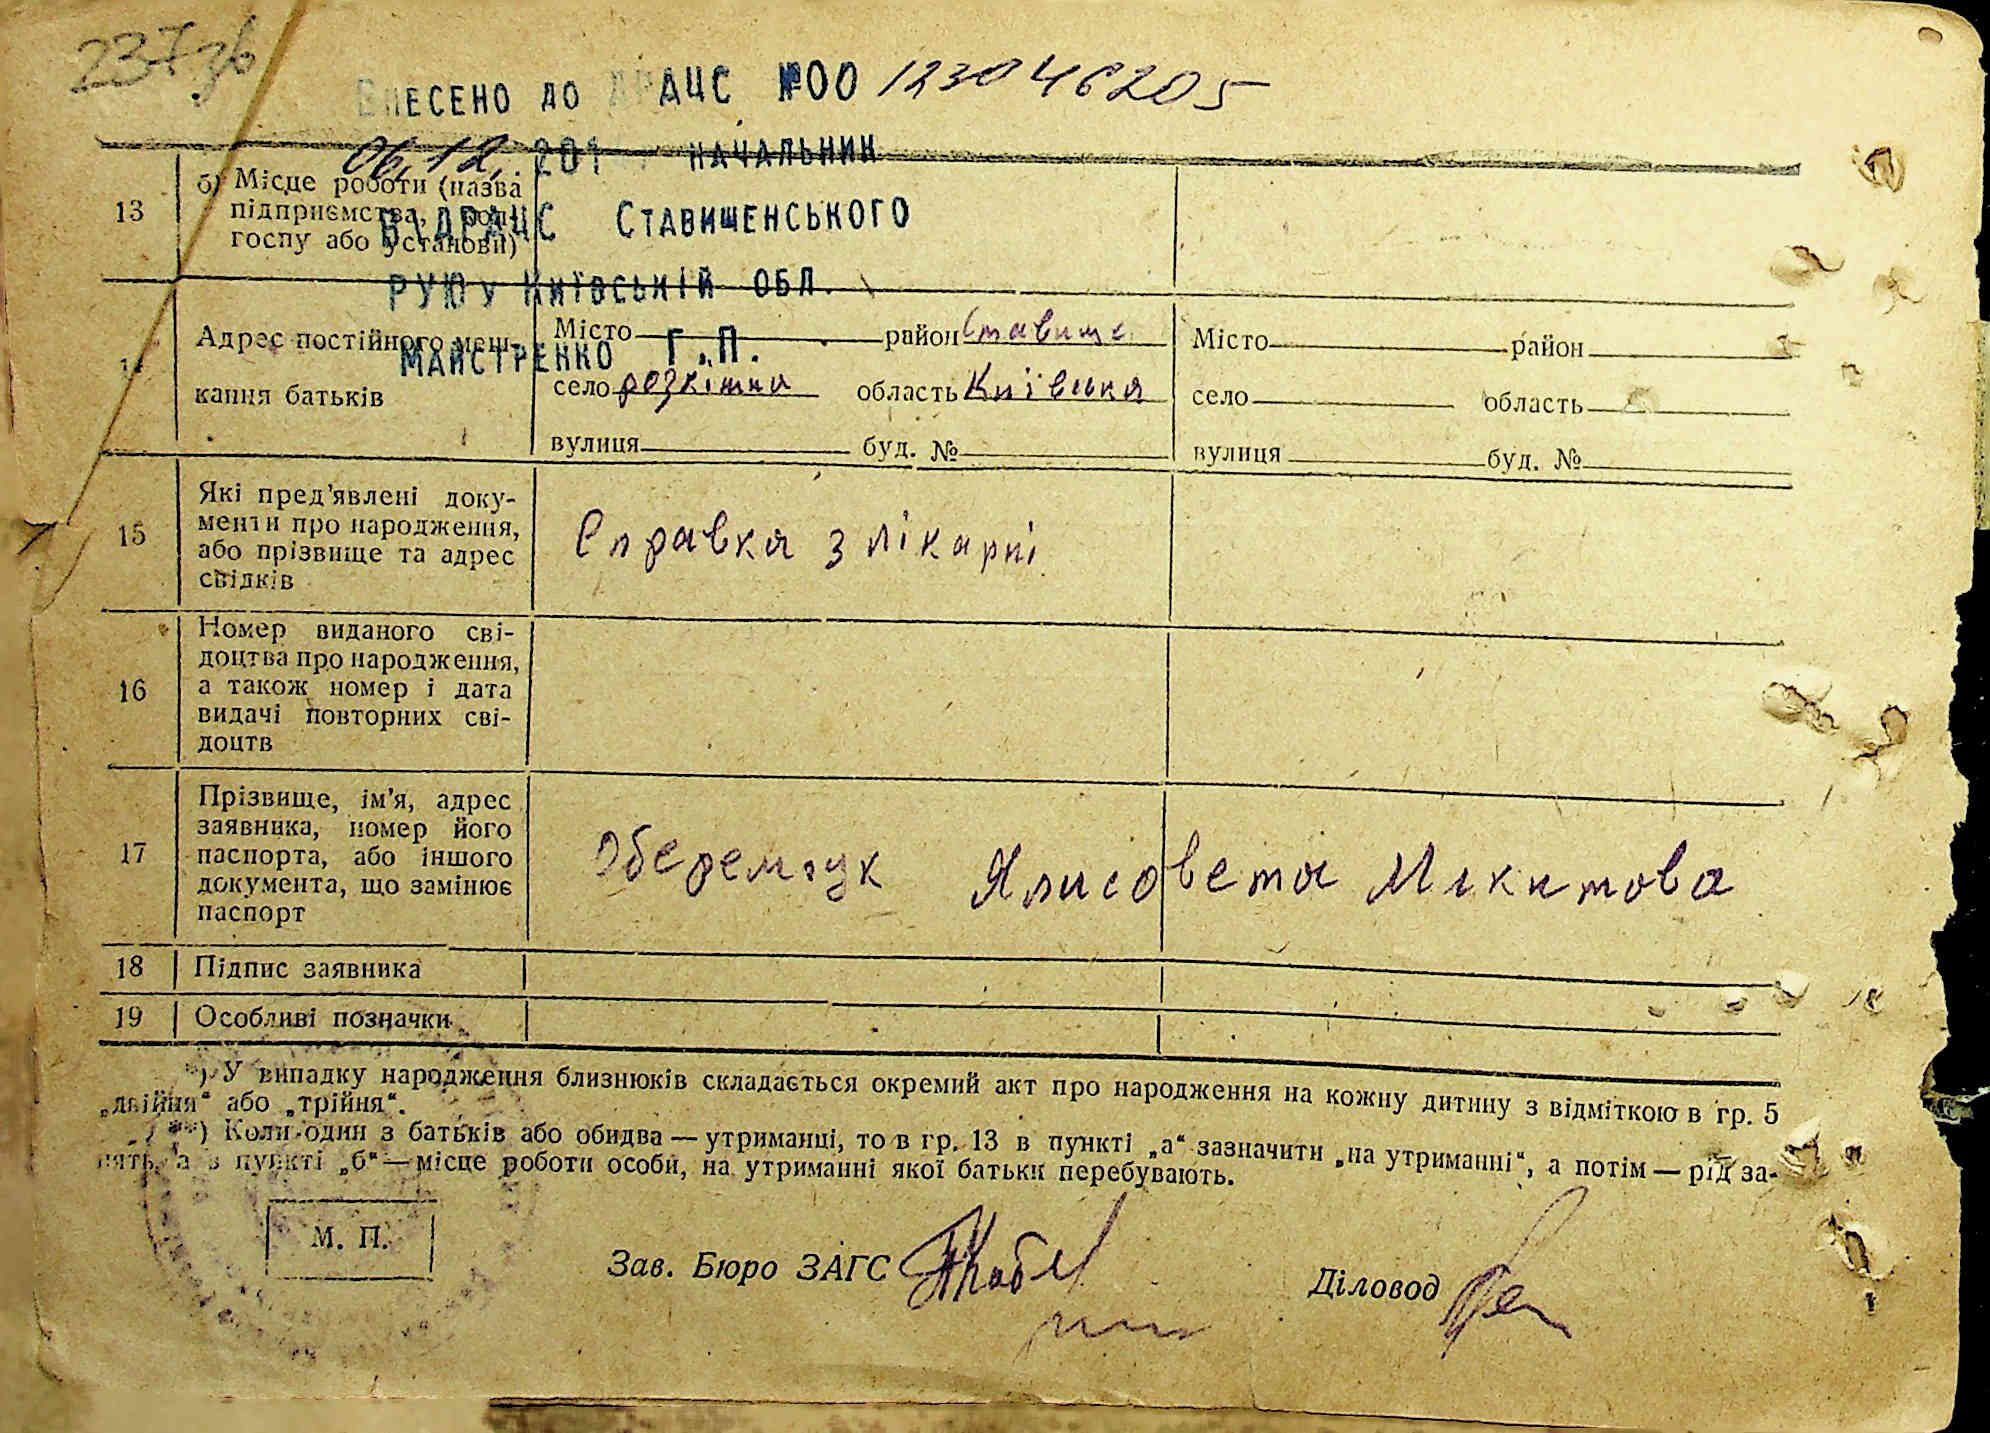 237зв
ВНЕСЕНО ДО ДРАЦС №00 123046205
06.12. 201 НАЧАЛЬНИК
ВДРАЦС СТАВИЩЕНСЬКОГО
РУЮ У КИЇВСЬКІЙ ОБЛ.
МАЙСТРЕНКО Г.П.
13 б) Місце роботи (назва
підприємства,
госпу або установи)
Адрес постійного меш-
кання батьків
Місто район Ставище
село розкішна область Київська
вулиця буд. №
Місто район
село область
вулиця буд. №
15 Які пред'явлені доку-
менти про народження,
або прізвище та адрес
свідків
Справка з лікарні
16 Номер виданого сві-
доцтва про народження,
а також номер і дата
видачі повторних сві-
доцтв
17 Прізвище, ім'я, адрес
заявника, номер його
паспорта, або іншого
документа, що замінює
паспорт
Оберемчук Ялисовета Микитова
18 Підпис заявника
19 Особливі позначки
*) У випадку народження близнюків складається окремий акт про народження на кожну дитину з відміткою в гр. 5
„двійня“ або „трійня“.
**) Коли один з батьків або обидва — утриманці, то в гр. 13 в пункті „а“ зазначити „на утриманні“, а потім — рід за-
нять, а в пункті „б“ — місце роботи особи, на утриманні якої батьки перебувають.
М. П.
Зав. Бюро ЗАГС
Діловод